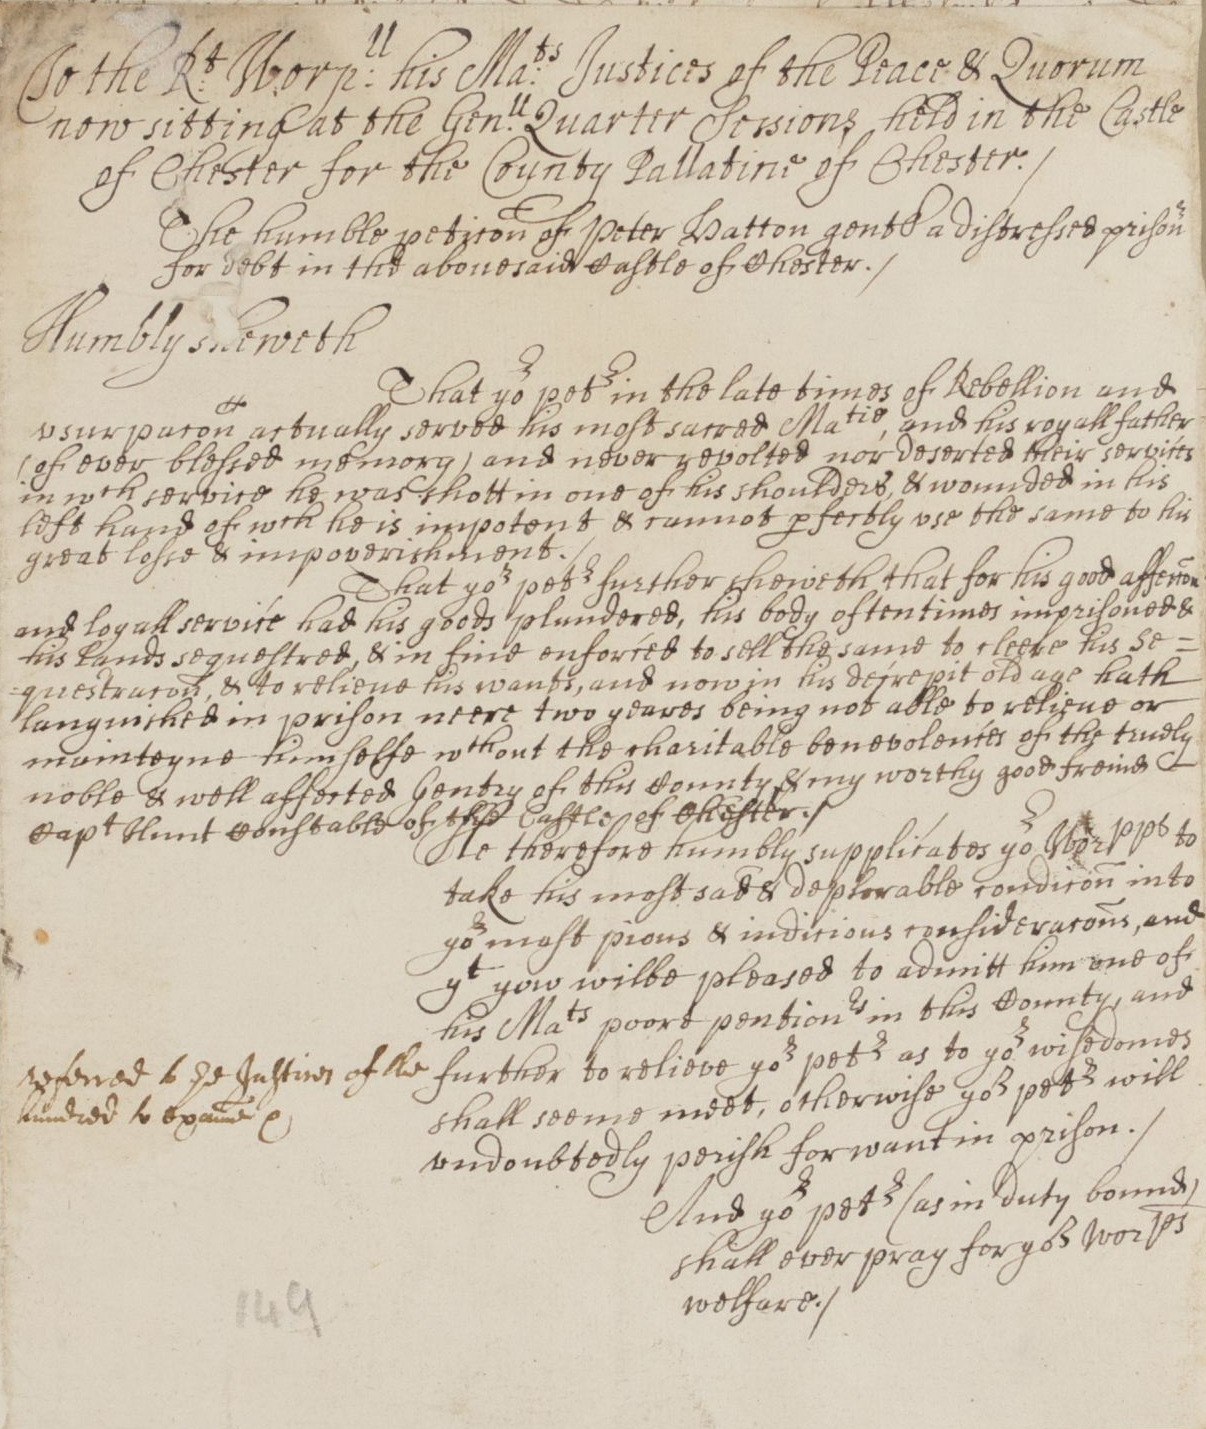 To the Rt: Worp:ll his Ma:ts Justices of the Peace & Quorum
now sitting at the Gen:ll Quarter Sessions held in the Castle
of Chester for the County Pallatine of Chester./
The humble peticon of Peter Hatton gent a distressed prisonr
for debt in the abovesaid Castle of Chester./
Humbly sheweth
That yor petr in the late times of Rebellion and
vsurpacon actually served his most sacred Matie, and his royall father
(of ever blessed memory) and never revolted nor deserted their services
in wch service he was shott in one of his shoulders, & wounded in his
left hand of wch he is impotent & cannot pfectly vse the same to his
great losse & impoverishment./
That yor petr further sheweth that for his good affeccon
and loyall service had his goods plundered, his body oftentimes imprisoned &
his Lands sequestred, & in fine enforced to sell the same to cleere his se=
=questracon, & to relieue his wants, and now in his decrepit old age hath
languished in prison neere two yeares being not able to relieue or
mainteyne himselfe wthout the charitable benevolences of the truely
noble & well affected Gentry of this County, & my worthy good freind
Capt Hunt Constable of the Castle of Chester./
He therefore humbly supplicates yor Worpps to
take his most sad & deplorable condicon into
yor most pious & iudicious consideracons, and
yt yow wilbe pleased to admitt him one of
his Mats poore pentionrs in this County, and
further to relieve yor petr as to yor wisedomes
shall seeme meet, otherwise yor petr will
vndoubtedly perish for want in prison./
referred to ye Justices of the
hundred to examine
And yor petr (as in duty bound)
shall ever pray for yor Worpps
welfare./
149